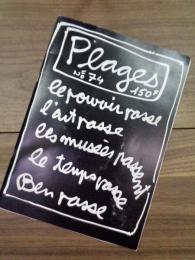 Plages
N° 74
150F
le pouvoir passe
l'art passe
les musées passent
le temps passe
Ben passe